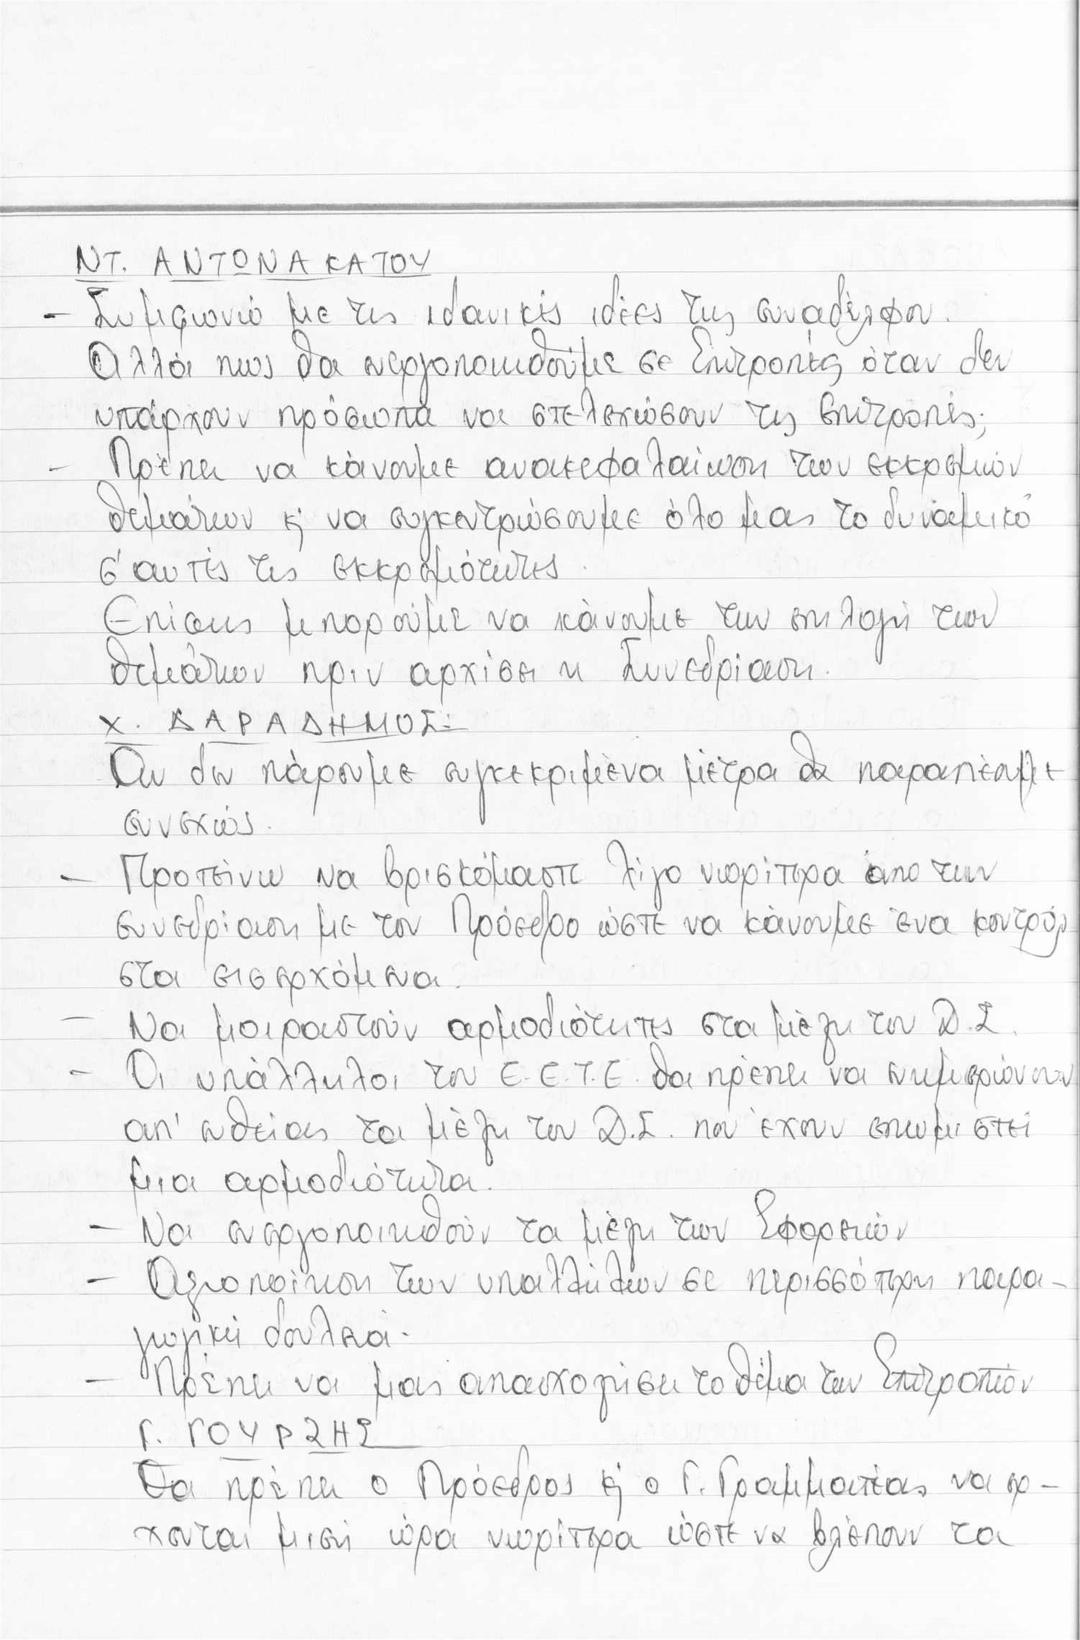 ΝΤ. ΑΝΤΩΝΑΚΑΤΟΥ
- Συμφωνώ με τις ιδανικές ιδέες της συναδέλφου.
Αλλά πως θα ενεργοποιηθούμε σε Επιτροπές όταν δεν
υπάρχουν πρόσωπα να στελεχώσουν τις επιτροπές;
- Πρέπει να κάνουμε ανακεφαλαίωση των εκκρεμών
θεμάτων κ' να συγκεντρώσουμε όλο μας το δυναμικό
σ' αυτές τις εκκρεμότητες.
Επίσης μπορούμε να κάνουμε την επιλογή των
θεμάτων πριν αρχίσει η Συνεδρίαση.
Χ. ΔΑΡΑΔΗΜΟΣ:
Αν δεν πάρουμε συγκεκριμένα μέτρα θα παραπέουμε
συνεχώς.
- Προτείνω να βρισκόμαστε λίγο νωρίτερα από την
συνεδρίαση με τον Πρόεδρο ώστε να κάνουμε ένα κοντρόλ
στα εισερχόμενα.
- Να μοιραστούν αρμοδιότητες στα μέλη του Δ.Σ.
- Οι υπάλληλοι του Ε.Ε.Τ.Ε. θα πρέπει να ενημερώνουν
απ' ευθείας τα μέλη του Δ.Σ. που έχουν επωμιστεί
μια αρμοδιότητα.
- Να ενεργοποιηθούν τα μέλη των Εφορειών
- Αξιοποίηση των υπαλλήλων σε περισσότερη παρα-
γωγική δουλειά.
- Πρέπει να μας απασχολήσει το θέμα των Επιτροπών
Γ. ΓΟΥΡΖΗΣ
Θα πρέπει ο Πρόεδρος κ' ο Γ. Γραμματέας να έρ-
χονται μισή ώρα νωρίτερα ώστε να βλέπουν τα